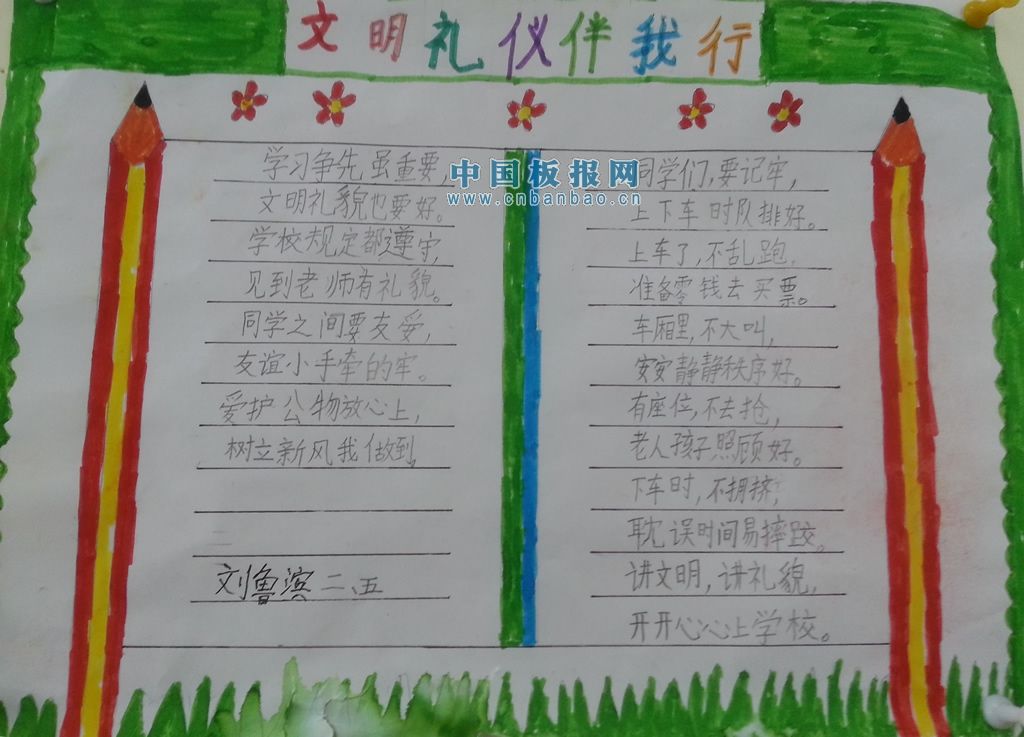 文明礼仪伴我行
学习争先虽重要,
文明礼貌也要好。
学校规定都遵守,
见到老师有礼貌。
同学之间要友爱,
友谊小手牵的牢。
爱护公物放心上,
树立新风我做到,
刘鲁滨 二、五
中国板报网
www.cnbanbao.cn
同学们,要记牢,
上下车时队排好。
上车了,不乱跑,
准备零钱去买票。
车厢里,不大叫,
安安静静秩序好。
有座位,不去抢,
老人孩子照顾好。
下车时,不拥挤,
耽误时间易摔跤。
讲文明,讲礼貌,
开开心心上学校。